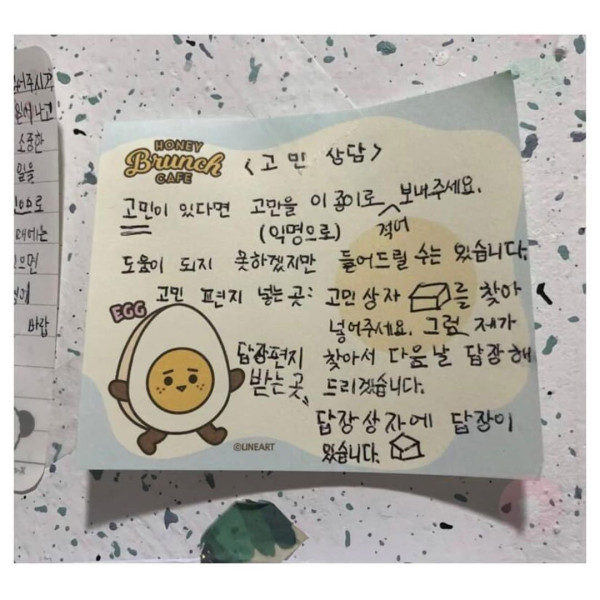 어주시거
원에나고
소중한
일을
으로
때에는
으면
바랍
HONEY
Brunch
CAFE
<고민 상담>
고민이 있다면 고민을 이 종이로 적어 보내주세요.
(익명으로)
도움이 되지 못하겠지만 들어드릴 수는 있습니다.
고민 편지 넣는 곳: 고민상자 를 찾아
넣어주세요. 그럼 제가
EGG
답장편지 찾아서 다음날 답장해
받는 곳, 드리겠습니다.
답장상자에 답장이
있습니다.
©LINEART